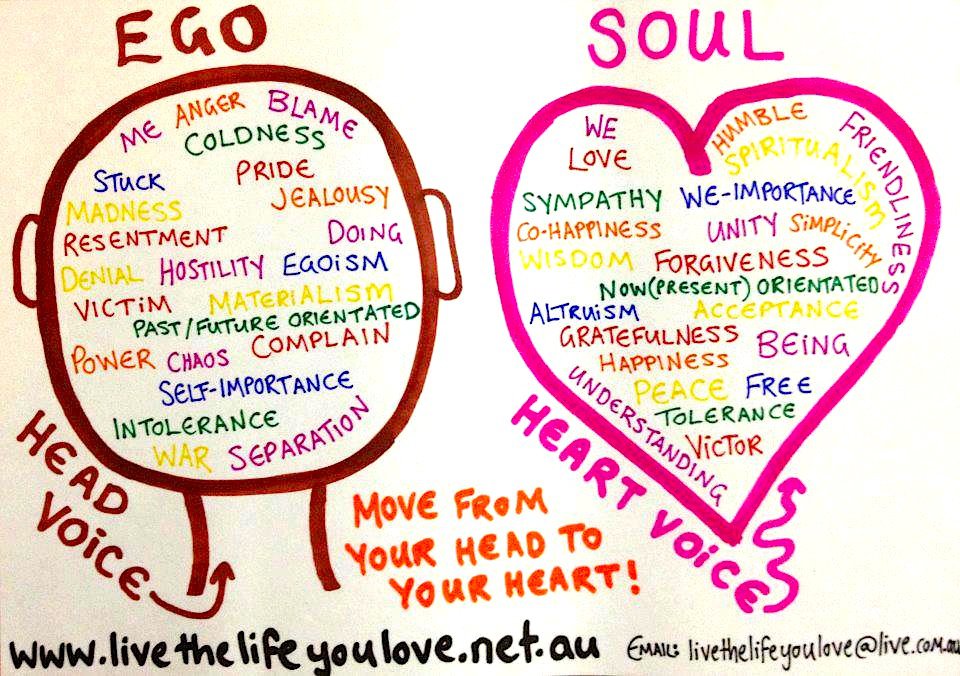 EGO
ME ANGER BLAME
COLDNESS
STUCK PRIDE
MADNESS JEALOUSY
RESENTMENT DOING
DENIAL HOSTILITY EGOiSM
VICTiM MATERiALISM
PAST/FUTURE ORiENTATED
POWER CHAOS COMPLAIN
SELF-IMPORTANCE
INTOLERANCE
WAR SEPARATION
HEAD
VOiCE
SOUL
WE HUMBLE FRiENDLINESS
LOVE SPIRITUALISM
SYMPATHY WE-IMPORTANCE
CO-HAPPINESS UNITY SiMPLiCiTY
WISDOM FORGIVENESS
NOW(PRESENT) ORIENTATED
ALTRUiSM ACCEPTANCE
GRATEFULNESS BEiNG
HAPPINESS
UNDERSTANDING PEACE FREE
TOLERANCE
ViCTOR
HEART VOiCE
MOVE FROM
YOUR HEAD TO
YOUR HEART!
www.livethelifeyoulove.net.au EMAIL: livethelifeyoulove@live.com.au